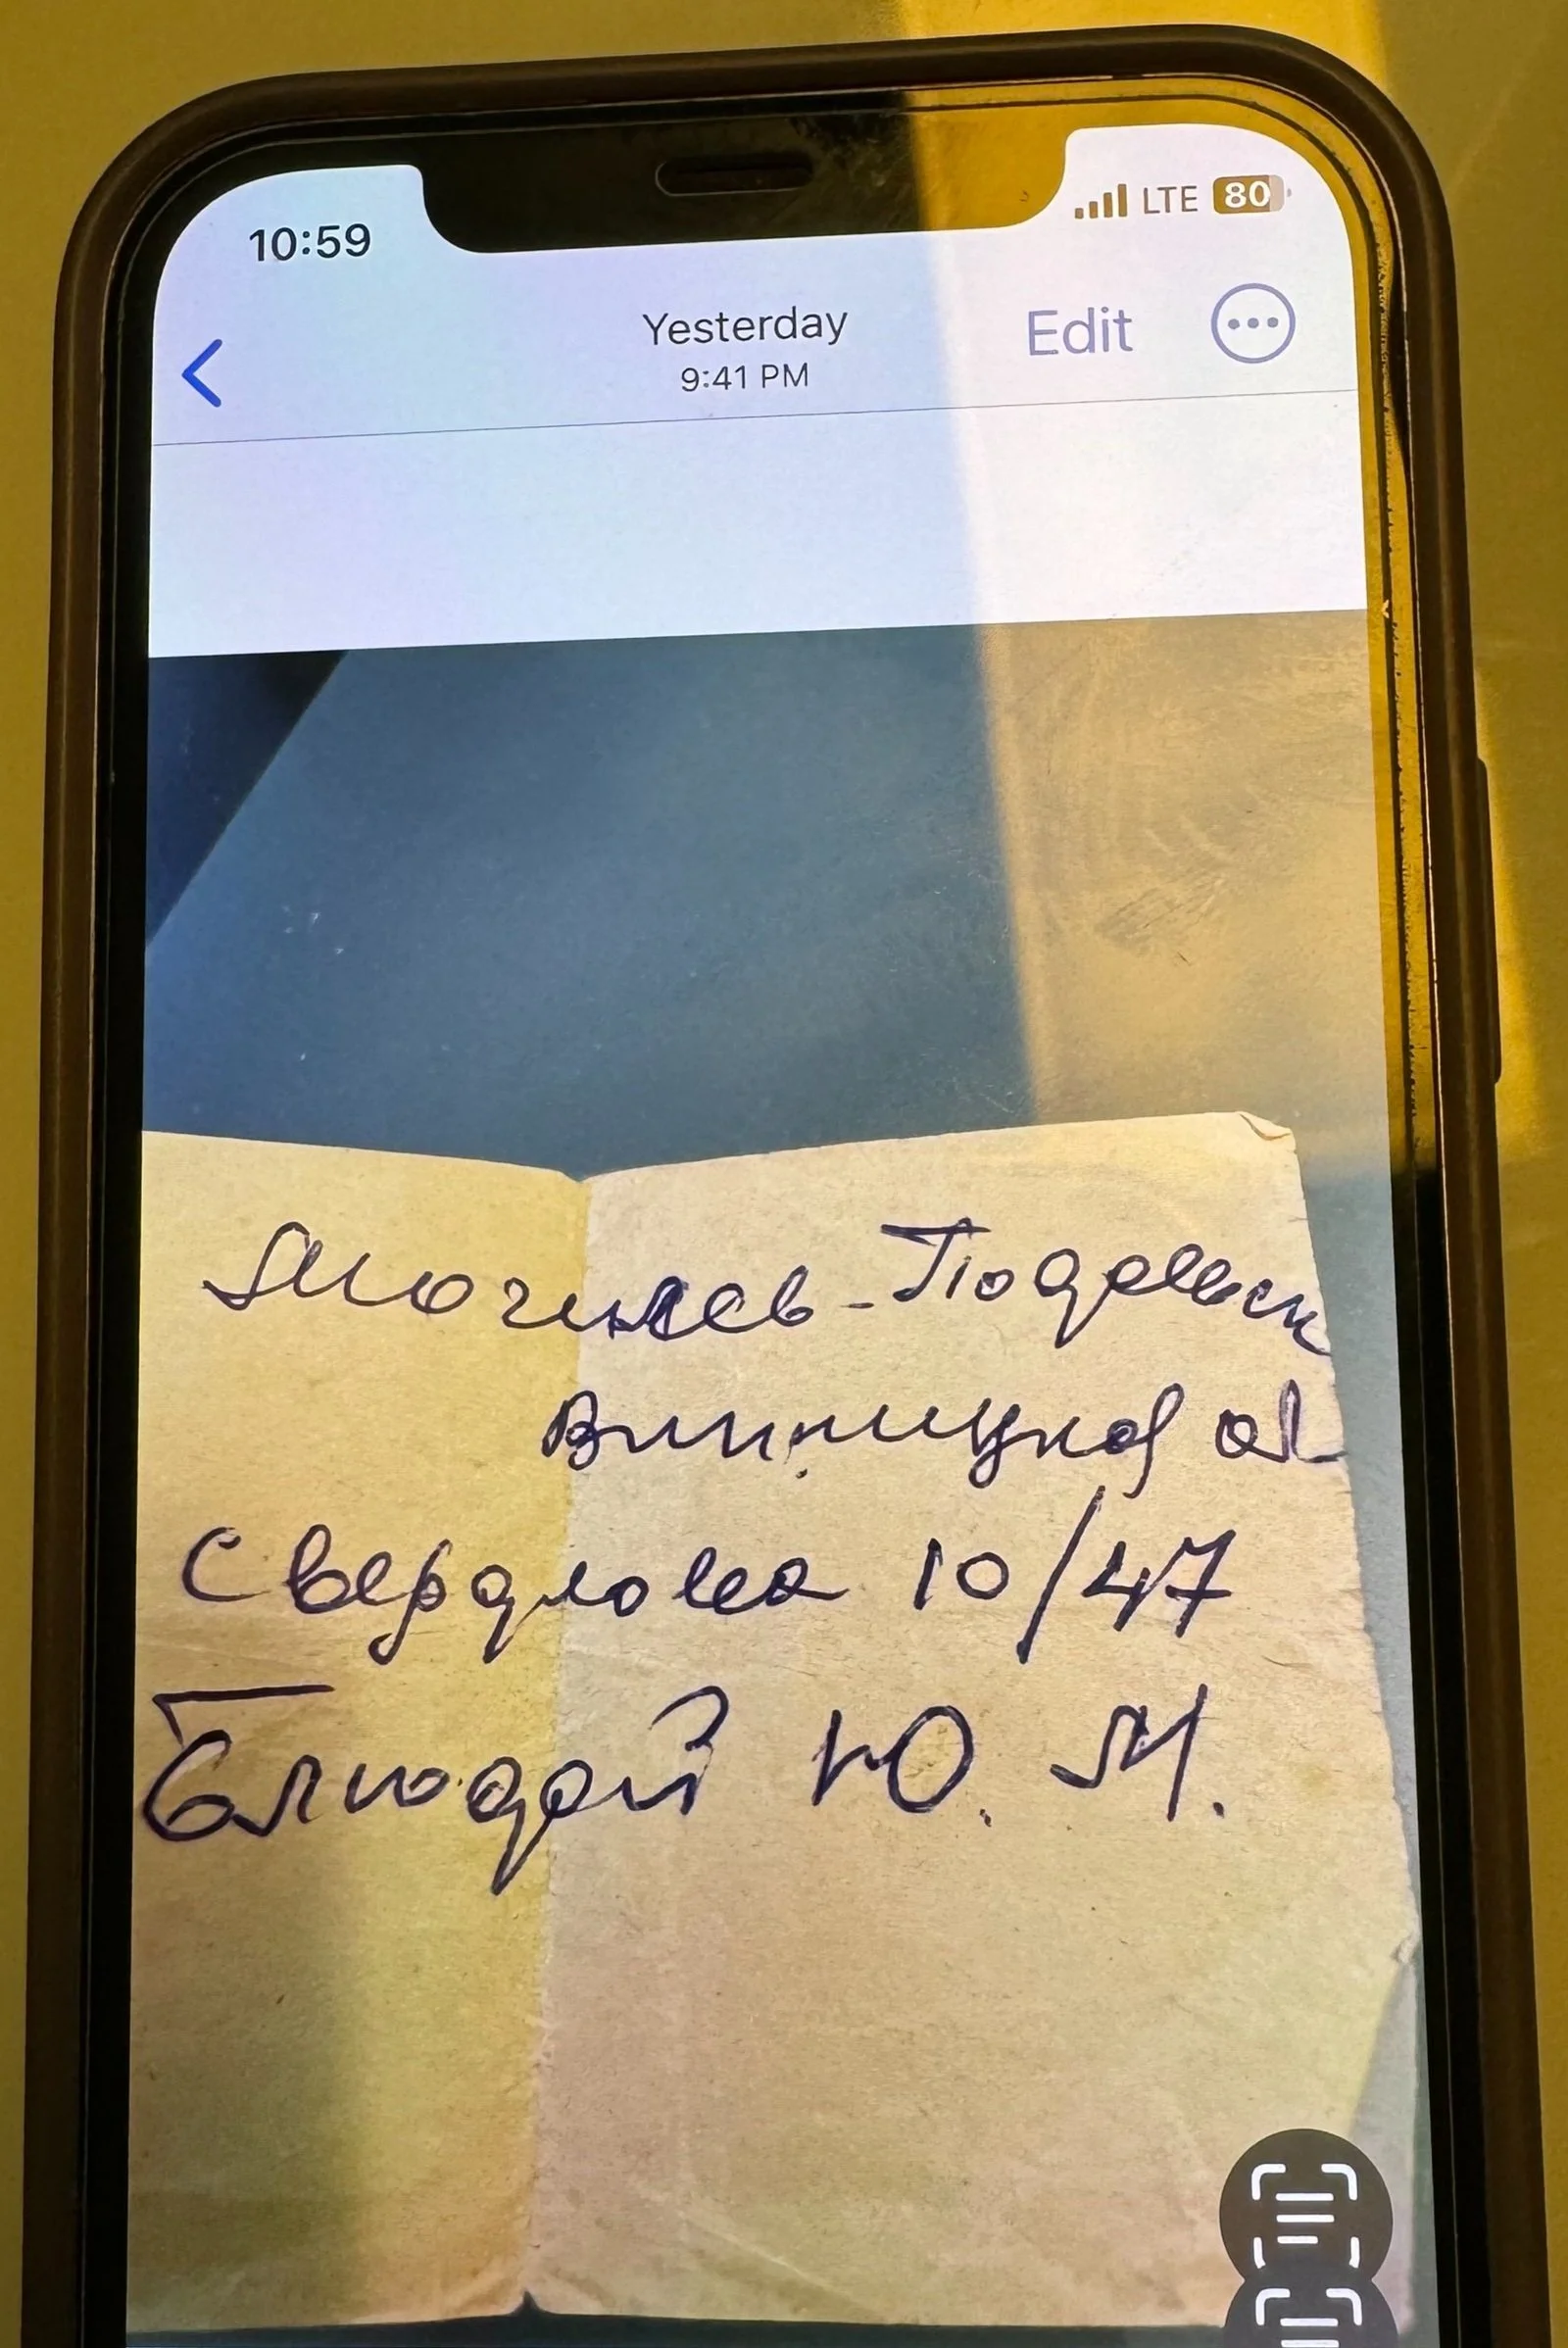 10:59 LTE 80
Yesterday Edit
9:41 PM
Могилев-Подольск
Винницкой об
Свердлова 10/47
Блюдой Ю. М.